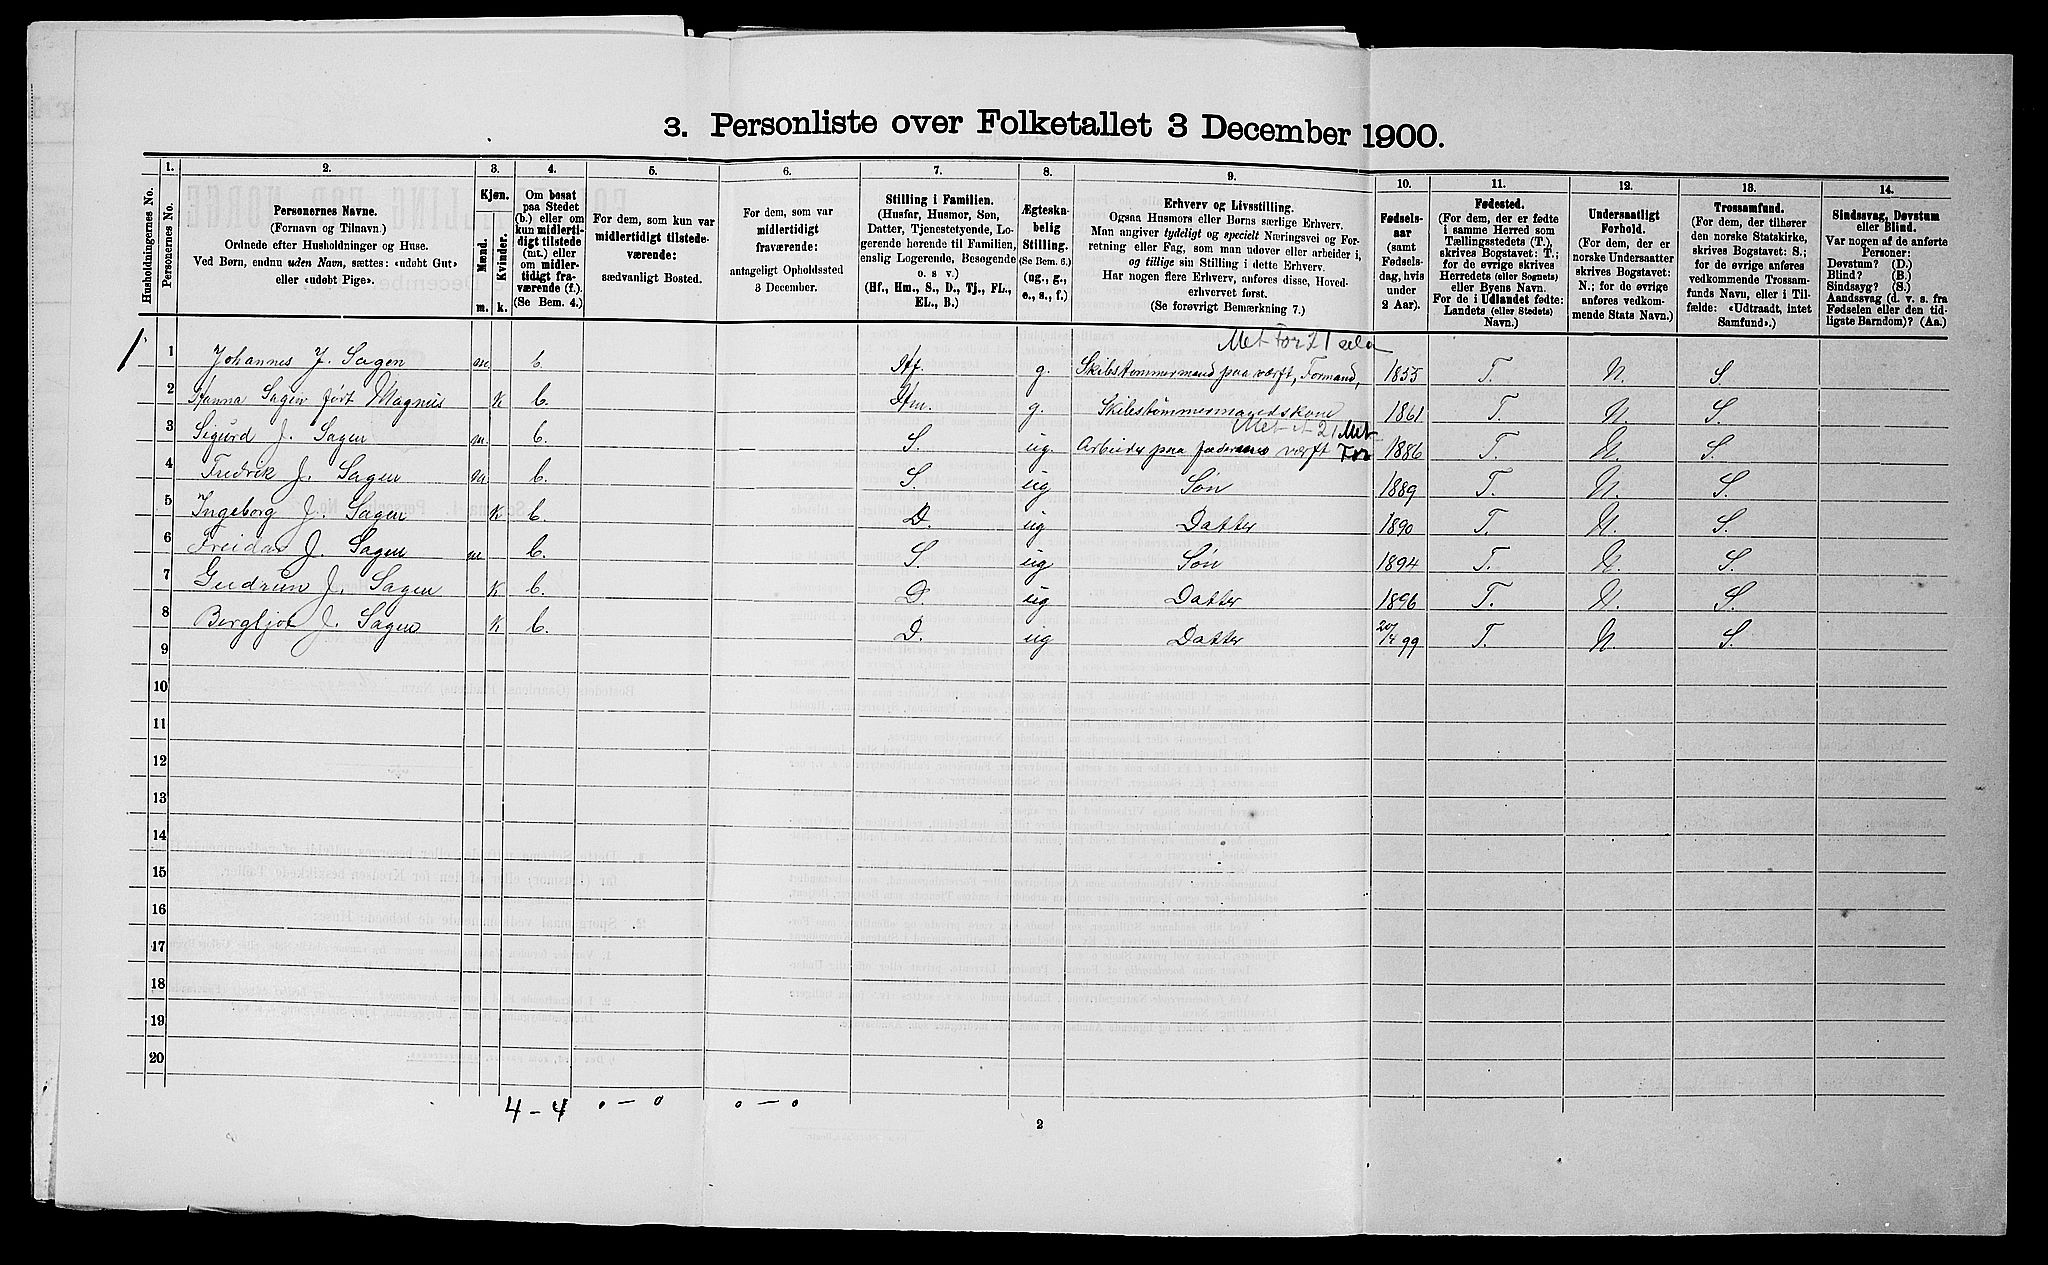 3. Personliste over Folketallet 3 December 1900.
Husholdningernes No.
1.
Personernes No.
2.
Personernes Navne.
(Fornavn og Tilnavn.)
Ordnede efter Husholdninger og Huse.
Ved Børn, endnu uden Navn, sættes: «udøbt Gut»
eller «udøbt Pige».
3.
Kjøn.
Mænd.
Kvinder.
m.
k.
4.
Om bosat
paa Stedet
(b.) eller om
kun midlerti-
digt tilstede
(mt.) eller
om midler-
tidigt fra-
værende (f.).
(Se Bem. 4.)
5.
For dem, som kun var
midlertidigt tilstede-
værende:
sædvanligt Bosted.
6.
For dem, som var
midlertidigt
fraværende:
antageligt Opholdssted
3 December.
7.
Stilling i Familien.
(Husfar, Husmor, Søn,
Datter, Tjenestetyende, Lo-
gerende hørende til Familien,
enslig Logerende, Besøgende
o. s v.)
(Hf., Hm., S., D., Tj., FL.,
EL., B.)
8.
Ægteska-
belig
Stilling.
(Se Bem. 6.)
(ug., g.,
e., s., f.)
9.
Erhverv og Livsstilling.
Ogsaa Husmors eller Børns særlige Erhverv.
Man angiver tydeligt og specielt Næringsvei og For-
retning eller Fag, som man udøver eller arbeider i,
og tillige sin Stilling i dette Erhverv.
Har nogen flere Erhverv, anføres disse, Hoved-
erhvervet først.
(Se forøvrigt Bemærkning 7.)
10.
Fødsels-
aar
(samt
Fødsels-
dag, hvis
under
2 Aar).
11.
Fødested.
(For dem, der er fødte
i samme Herred som
Tællingsstedets (T.),
skrives Bogstavet: T.;
for de øvrige skrives
Herredets (eller Sognets)
eller Byens Navn.
For de i Udlandet fødte:
Landets (eller Stedets)
Navn.)
12.
Undersaatligt
Forhold.
(For dem, der er
norske Undersaatter
skrives Bogstavet:
N.; for de øvrige
anføres vedkom-
mende Stats Navn.)
13.
Trossamfund.
(For dem, der tilhører
den norske Statskirke,
skrives Bogstavet: S.;
for de øvrige anføres
vedkommende Trossam-
funds Navn, eller i Til-
fælde: «Udtraadt, intet
Samfund».)
14.
Sindssvag, Døvstum
eller Blind.
Var nogen af de anførte
Personer:
Døvstum? (D.)
Blind? (B.)
Sindssyg? (S.)
Aandssvag (d. v. s. fra
Fødselen eller den tid-
ligste Barndom)? (Aa.)
Met For 21
1 1 Johannes J. Sagen m. b. Hf. g. Skibstømmermand paa værft, Formand, 1855 T. N. S.
2 Hanna Sagen født Magnus K b. Hm. g. Skibstømmermandskone 1861 T. N. S.
Met 21 Met
3 Sigurd J. Sagen m. b. S. ug. Arbeider paa faderens værft For 1886 T. N. S.
4 Fredrik J. Sagen m. b. S. ug Søn 1889 T. N. S.
5 Ingeborg J. Sagen K b. D. ug Datter 1890 T. N. S.
6 Freidar J. Sagen m. b. S. ug Søn 1894 T. N. S.
7 Gudrun J. Sagen K b. D. ug Datter 1896 T. N. S.
8 Bergljot J. Sagen K b. D. ug Datter 20/4 99 T. N. S.
9
10
11
12
13
14
15
16
17
18
19
20
4 - 4 0 - 0 0 - 0
2